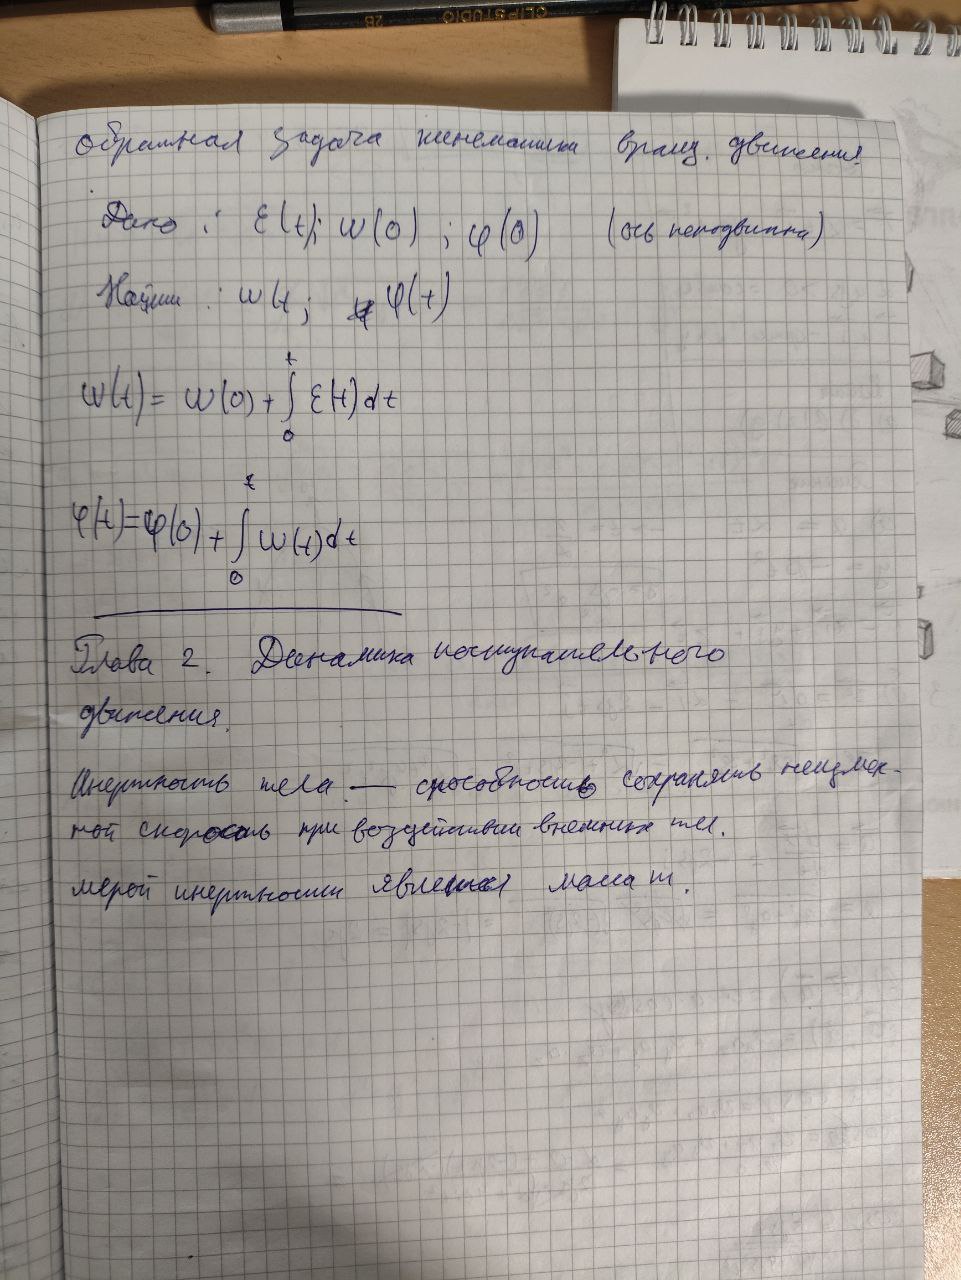 CLIP STUDIO 2B
Обратная задача кинематики вращ. движения.
Дано: ε(t); ω(0); φ(0) (ось неподвижна)
Найти: ω(t; φ(t)
ω(t) = ω(0) + ∫₀ᵗ ε(t) dt
φ(t) = φ(0) + ∫₀ᵗ ω(t) dt
Глава 2. Динамика поступательного
движения.
Инертность тела — способность сохранять неизмен-
ной скорость при воздействии внешних тел.
мерой инертности является масса m.